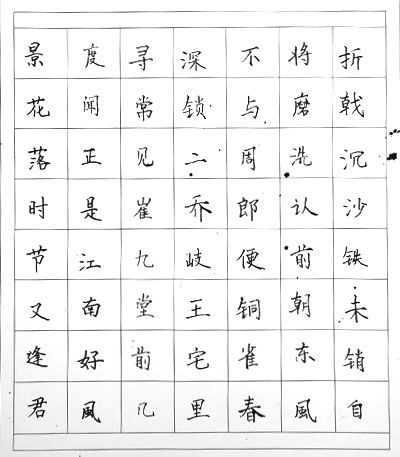 折戟沉沙铁未销自
将磨洗认前朝东風
不与周郎便铜雀春
深锁二乔岐王宅里
寻常见崔九堂前几
度闻正是江南好風
景花落时节又逢君